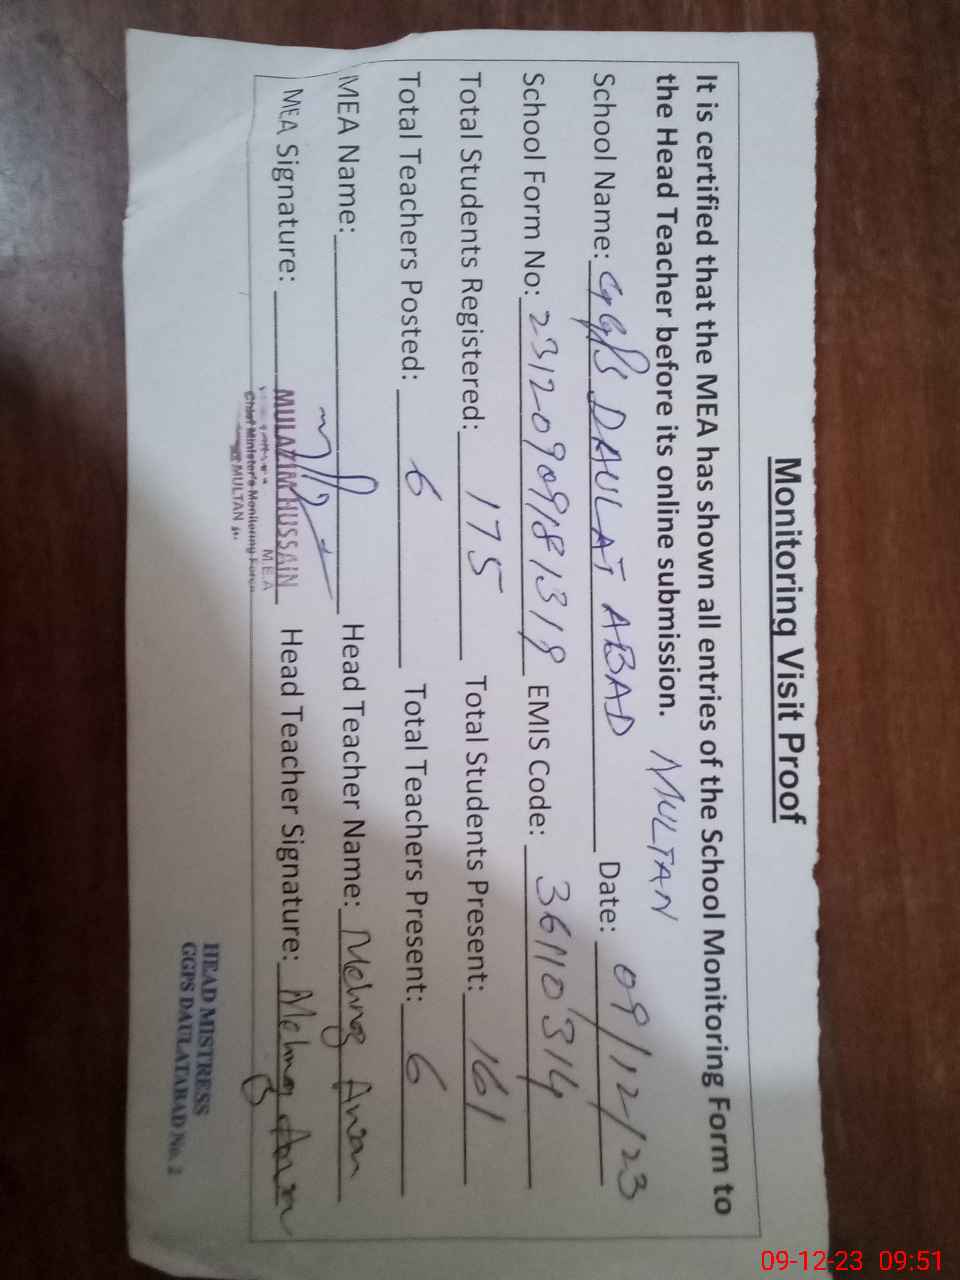 Monitoring Visit Proof
It is certified that the MEA has shown all entries of the School Monitoring Form to
the Head Teacher before its online submission. MULTAN
School Name: GGPS DAULAT ABAD Date: 09/12/23
School Form No: EMIS Code: 36110314
Total Students Registered: 175 Total Students Present: 161
Total Teachers Posted: 6 Total Teachers Present: 6
MEA Name: Head Teacher Name: Mehnaz Awan
MEA Signature: MULAZIM HUSSAIN Head Teacher Signature: Mehnaz Awan
M.E.A
Chief Minister's Monitoring Force
MULTAN
HEAD MISTRESS
GGPS DAULATABAD No. 2
09-12-23 09:51